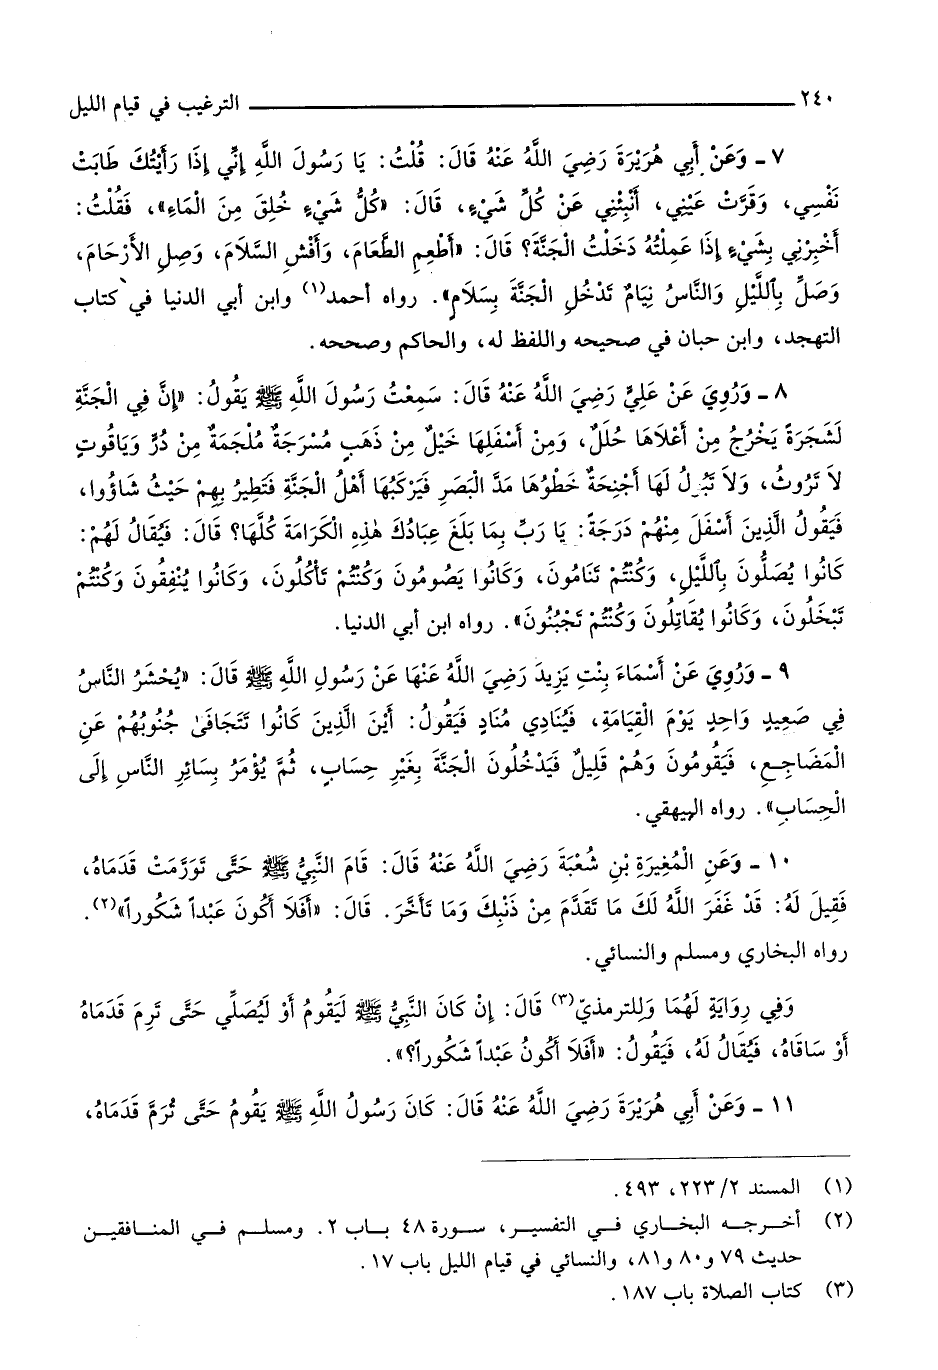 ٢٤٠ الترغيب في قيام الليل
٧ ـ وَعَنْ أَبِي هُرَيْرَةَ رَضِيَ اللَّهُ عَنْهُ قَالَ: قُلْتُ: يَا رَسُولَ اللَّهِ إِنِّي إِذَا رَأَيْتُكَ طَابَتْ
نَفْسِي، وَقَرَّتْ عَيْنِي، أَنْبِئْنِي عَنْ كُلِّ شَيْءٍ، قَالَ: «كُلُّ شَيْءٍ خُلِقَ مِنَ الْمَاءِ»، فَقُلْتُ:
أَخْبِرْنِي بِشَيْءٍ إِذَا عَمِلْتُهُ دَخَلْتُ الْجَنَّةَ؟ قَالَ: «أَطْعِمِ الطَّعَامَ، وَأَفْشِ السَّلَامَ، وَصِلِ الأَرْحَامَ،
وَصَلِّ بِاللَّيْلِ وَالنَّاسُ نِيَامٌ تَدْخُلِ الْجَنَّةَ بِسَلَامٍ». رواه أحمد(١) وابن أبي الدنيا في كتاب
التهجد، وابن حبان في صحيحه واللفظ له، والحاكم وصححه.
٨ ـ وَرُوِيَ عَنْ عَلِيٍّ رَضِيَ اللَّهُ عَنْهُ قَالَ: سَمِعْتُ رَسُولَ اللَّهِ ﷺ يَقُولُ: «إِنَّ فِي الْجَنَّةِ
لَشَجَرَةً يَخْرُجُ مِنْ أَعْلَاهَا حُلَلٌ، وَمِنْ أَسْفَلِهَا خَيْلٌ مِنْ ذَهَبٍ مُسْرَجَةٌ مُلْجَمَةٌ مِنْ دُرٍّ وَيَاقُوتٍ
لاَ تَرُوثُ، وَلاَ تَبُولُ لَهَا أَجْنِحَةٌ خَطْوُهَا مَدَّ الْبَصَرِ فَيَرْكَبُهَا أَهْلُ الْجَنَّةِ فَتَطِيرُ بِهِمْ حَيْثُ شَاؤُوا،
فَيَقُولُ الَّذِينَ أَسْفَلَ مِنْهُمْ دَرَجَةً: يَا رَبِّ بِمَا بَلَغَ عِبَادُكَ هٰذِهِ الْكَرَامَةَ كُلَّهَا؟ قَالَ: فَيُقَالُ لَهُمْ:
كَانُوا يُصَلُّونَ بِاللَّيْلِ، وَكُنْتُمْ تَنَامُونَ، وَكَانُوا يَصُومُونَ وَكُنْتُمْ تَأْكُلُونَ، وَكَانُوا يُنْفِقُونَ وَكُنْتُمْ
تَبْخَلُونَ، وَكَانُوا يُقَاتِلُونَ وَكُنْتُمْ تَجْبُنُونَ». رواه ابن أبي الدنيا.
٩ ـ وَرُوِيَ عَنْ أَسْمَاءَ بِنْتِ يَزِيدَ رَضِيَ اللَّهُ عَنْهَا عَنْ رَسُولِ اللَّهِ ﷺ قَالَ: «يُحْشَرُ النَّاسُ
فِي صَعِيدٍ وَاحِدٍ يَوْمَ الْقِيَامَةِ، فَيُنَادِي مُنَادٍ فَيَقُولُ: أَيْنَ الَّذِينَ كَانُوا تَتَجَافَىٰ جُنُوبُهُمْ عَنِ
الْمَضَاجِعِ، فَيَقُومُونَ وَهُمْ قَلِيلٌ فَيَدْخُلُونَ الْجَنَّةَ بِغَيْرِ حِسَابٍ، ثُمَّ يُؤْمَرُ بِسَائِرِ النَّاسِ إِلَى
الْحِسَابِ». رواه البيهقي.
١٠ ـ وَعَنِ الْمُغِيرَةِ بْنِ شُعْبَةَ رَضِيَ اللَّهُ عَنْهُ قَالَ: قَامَ النَّبِيُّ ﷺ حَتَّى تَوَرَّمَتْ قَدَمَاهُ،
فَقِيلَ لَهُ: قَدْ غَفَرَ اللَّهُ لَكَ مَا تَقَدَّمَ مِنْ ذَنْبِكَ وَمَا تَأَخَّرَ. قَالَ: «أَفَلَا أَكُونَ عَبْداً شَكُوراً»(٢).
رواه البخاري ومسلم والنسائي.
وَفِي رِوَايَةٍ لَهُمَا وَلِلترمذيّ(٣) قَالَ: إِنْ كَانَ النَّبِيُّ ﷺ لَيَقُومُ أَوْ لَيُصَلِّي حَتَّى تَرِمَ قَدَمَاهُ
أَوْ سَاقَاهُ، فَيُقَالُ لَهُ، فَيَقُولُ: «أَفَلَا أَكُونُ عَبْداً شَكُوراً؟».
١١ ـ وَعَنْ أَبِي هُرَيْرَةَ رَضِيَ اللَّهُ عَنْهُ قَالَ: كَانَ رَسُولُ اللَّهِ ﷺ يَقُومُ حَتَّى تُرَمَّ قَدَمَاهُ،
(١) المسند ٢/ ٢٢٣، ٤٩٣.
(٢) أخرجه البخاري في التفسير، سورة ٤٨ باب ٢. ومسلم في المنافقين
حديث ٧٩ و٨٠ و٨١، والنسائي في قيام الليل باب ١٧.
(٣) كتاب الصلاة باب ١٨٧.